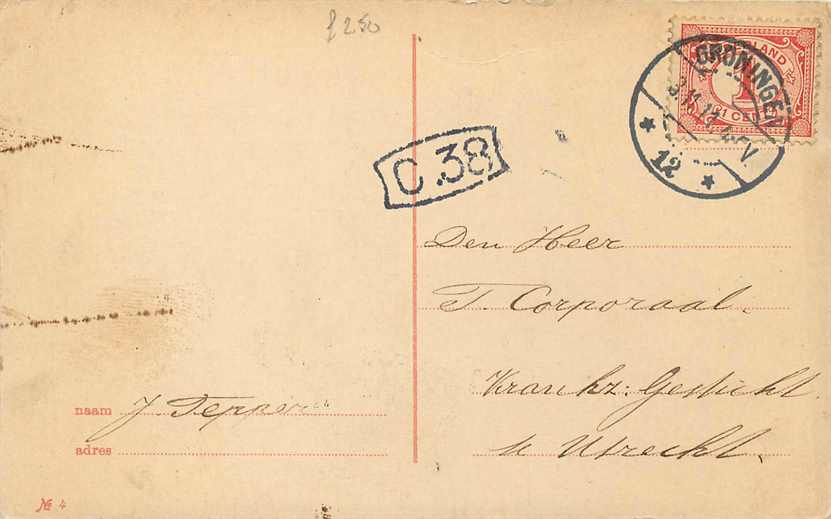 ƒ 250
NEDERLAND
1
1 CENT
GRONINGEN
12
C.38
Den Heer
T. Corporaal.
Krankz: Gesticht
te Utrecht.
naam J. Tepper
adres
№ 4